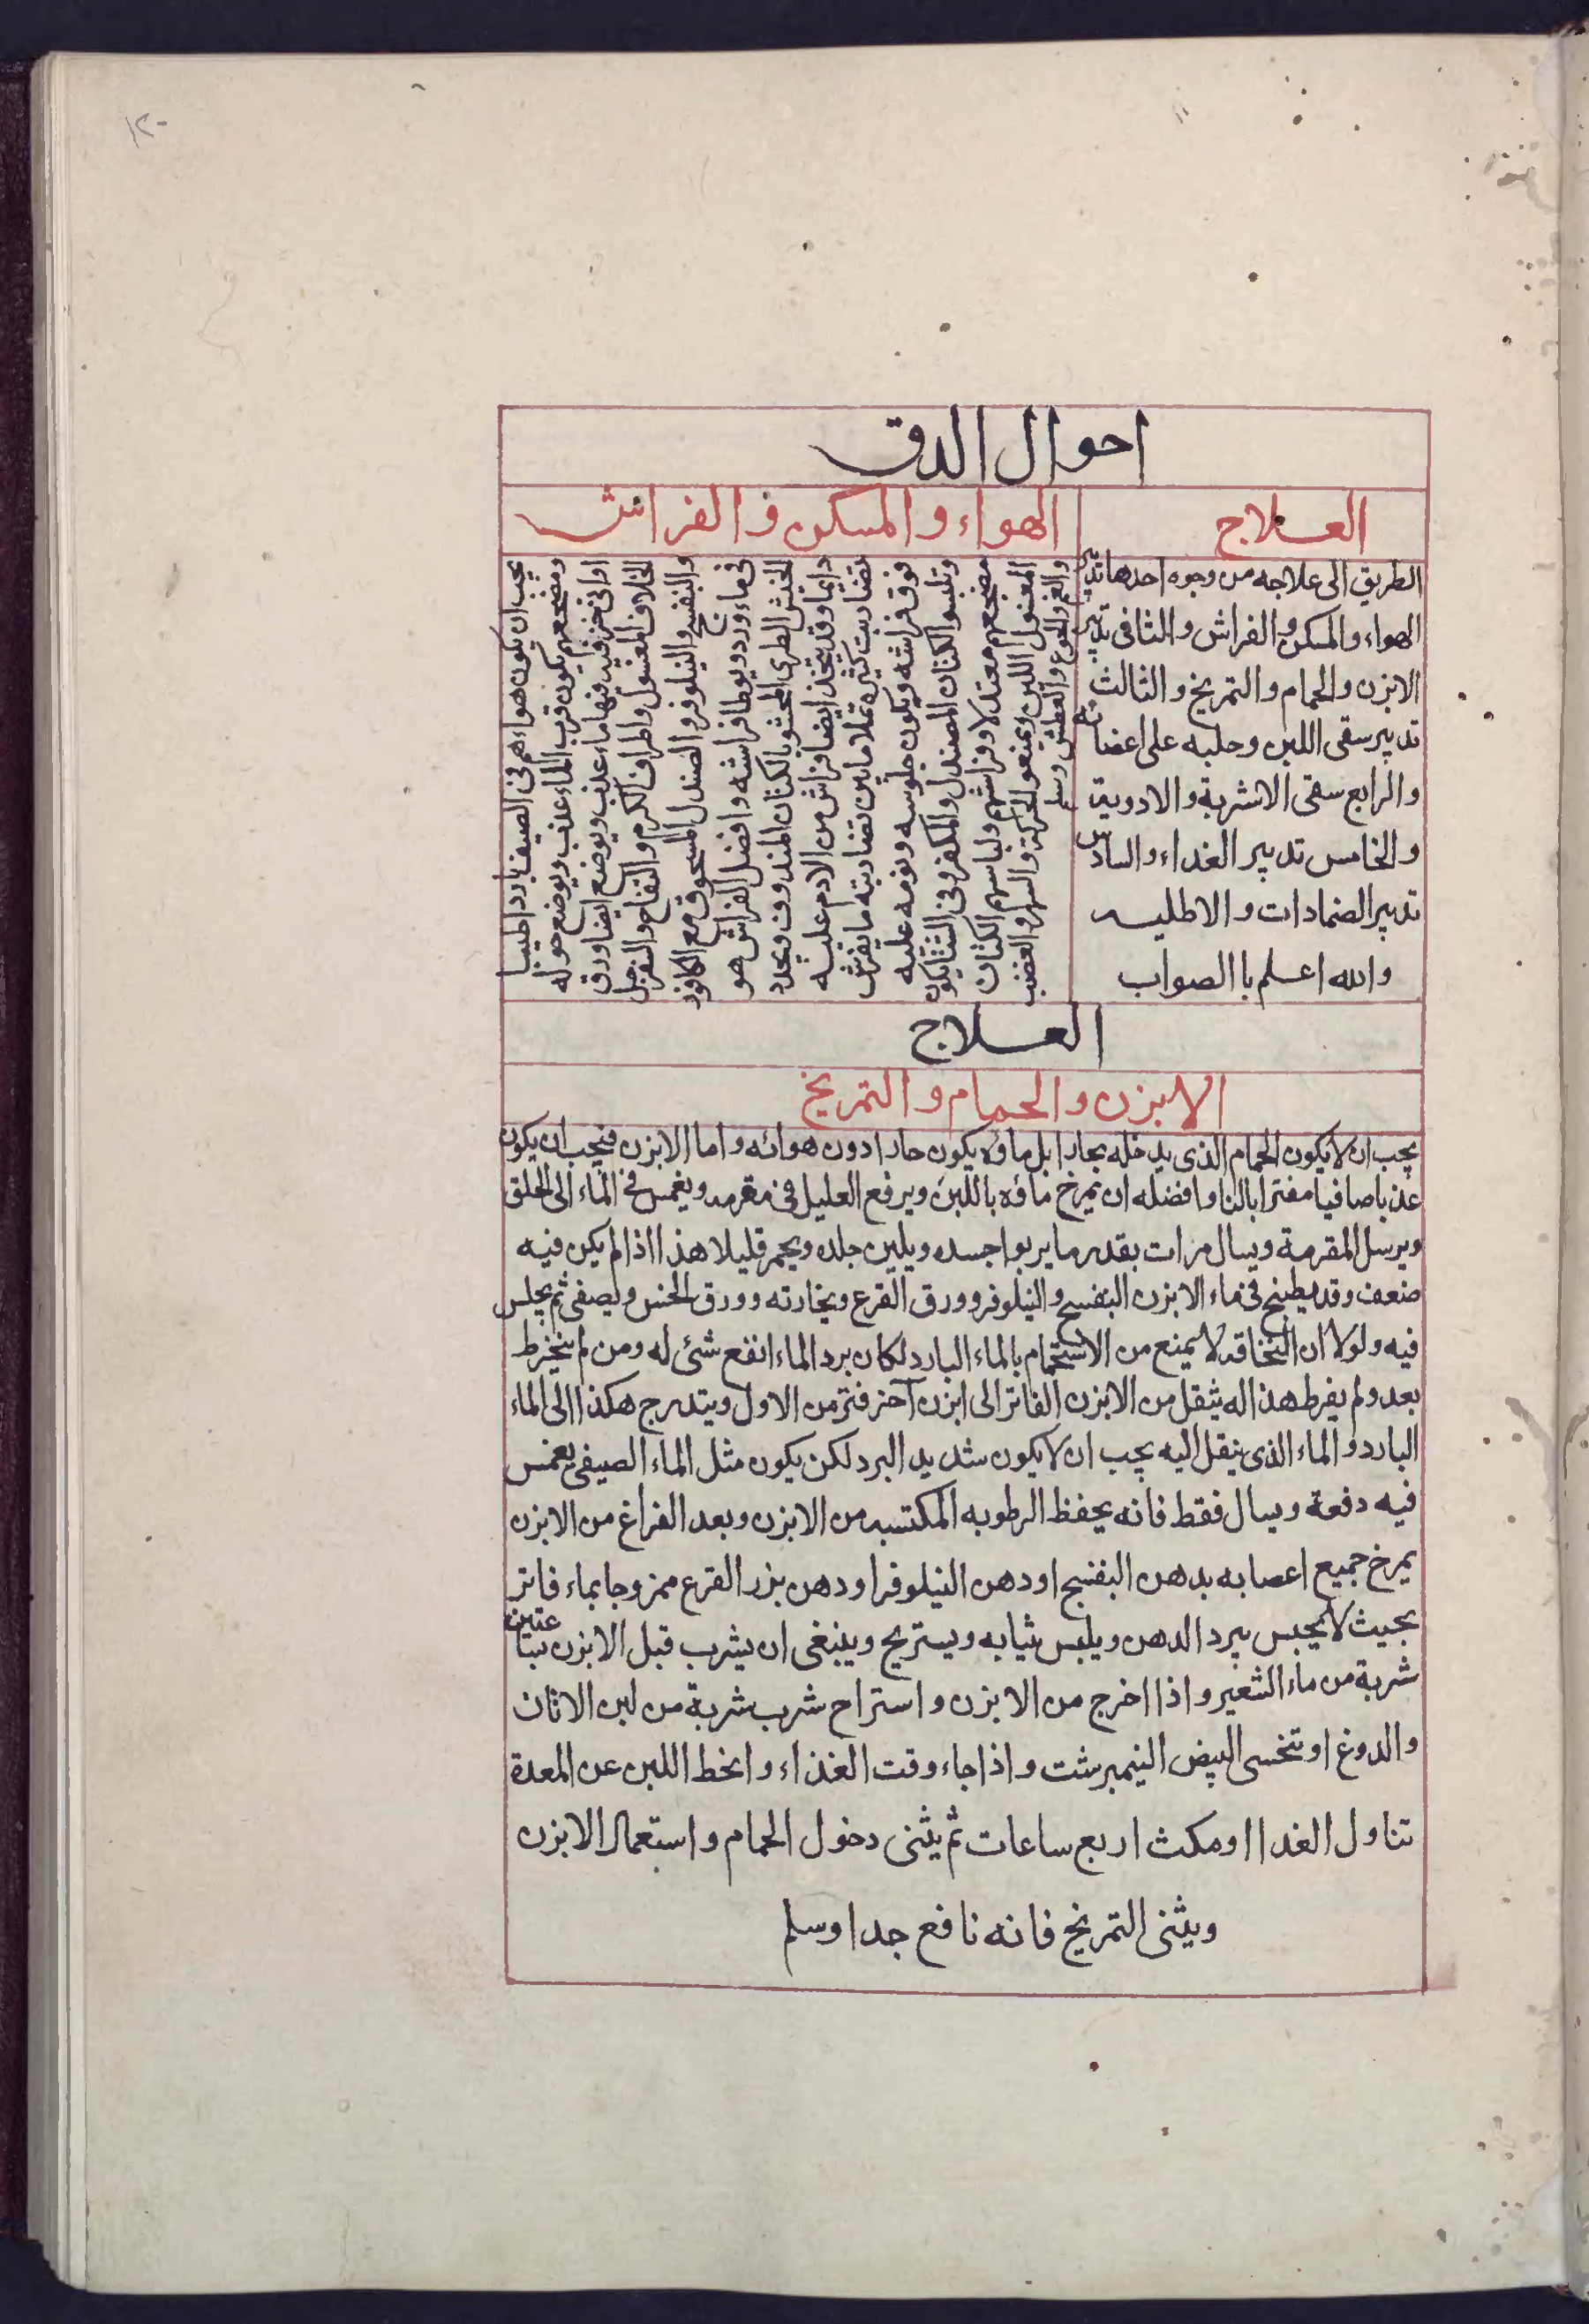 ١٢٠
احوال الدق
العلاج
الطريق الى علاجه من وجوه احدها تدبير
الهواء والمسكن والفراش والثانى تدبير
الابزن والحمام والتمريخ والثالث
تدبير سقى اللبن وحلبه على اعضائه
والرابع سقى الاشربة والادوية
والخامس تدبير الغداء والسادس
تدبير الضمادات والاطليه
والله اعلم باالصواب
الهواء والمسكن والفراش
يجب ان يكون هواءهم فى الصيف باردا طيبا
ومضجعهم يكون قرب الماء عذب ويوضع حوله
اوانى خزفيه فيها ماء عذب ويوضع ايضا ورق
الخلاف المغسول واطراف الكرم والتفاح والسفرجل
والبنفسج والنيلوفر والصندل المسحوق مع الكافور
فى ماء ورد ويوطا فراشه وافضل الفراش هو
الخيش الطرى المحشو بالكتان المندوف ويجدد
دايما وقد يتخذ ايضا فراش من الادم عليه
تضاريب كثيره تملا ما بين تضاريبه ما يفرش
فوق فراشه ويكون جلوسه ونومه عليه
وتلبسوا الكتان المصندل والمكفر وفى الشتا يكون
مضجعهم معتدلا وفراشهم ولباسهم الكتان
المغسول اللين ويمنعوا الحركة والسهر والغضب
والغم والجوع والعطش وسلم
العلاج
الابزن والحمام والتمريخ
يجب ان لا يكون الحمام الذى يدخله بحارا بل ماؤه يكون حارا دون هوائه واما الابزن فيجب ان يكون
عذبا صافيا مفترا بالنا وافضله ان يمزج ماؤه باللبن ويرفع العليل فى مقرمه ويغمس فى الماء الى الحلق
ويرسل المقرمة ويسال مرات بقدر ما يربوا جسده ويلين جلده ويحمر قليلا هذا اذا لم يكن فيه
ضعف وقد يطبخ فى ماء الابزن البنفسج والنيلوفر وورق القرع ويخارته وورق الخس وليصفى ثم يجلس
فيه ولولا ان النخاقد لا يمنع من الاستحمام بالماء البارد لكان برد الماء انفع شئ له ومن لم ينخرط
بعد ولم يفرط هذا له يثقل من الابزن الفاتر الى ابزن آخر فتر من الاول ويتدرج هكذا الى الماء
البارد والماء الذى ينقل اليه يجب ان لا يكون شديد البرد لكن يكون مثل الماء الصيفى يغمس
فيه دفعة ويسال فقط فانه يحفظ الرطوبه المكتسبه من الابزن وبعد الفراغ من الابزن
يمرخ جميع اعصابه بدهن البنفسج اودهن النيلوفر اودهن بزر القرع ممزوجا بماء فاتر
بحيث لا يحبس ببرد الدهن ويلبس ثيابه ويستريح وينبغى ان يشرب قبل الابزن بساعتين
شربة من ماء الشعير واذا اخرج من الابزن واستراح شرب شربة من لبن الاتان
والدوغ او تتحسى البيض النيمبرشت واذا جاء وقت الغذاء وانحط اللبن عن المعدة
تناول الغدا اومكث اربع ساعات ثم يثنى دخول الحمام واستعمال الابزن
ويثنى التمريخ فانه نافع جدا وسلم